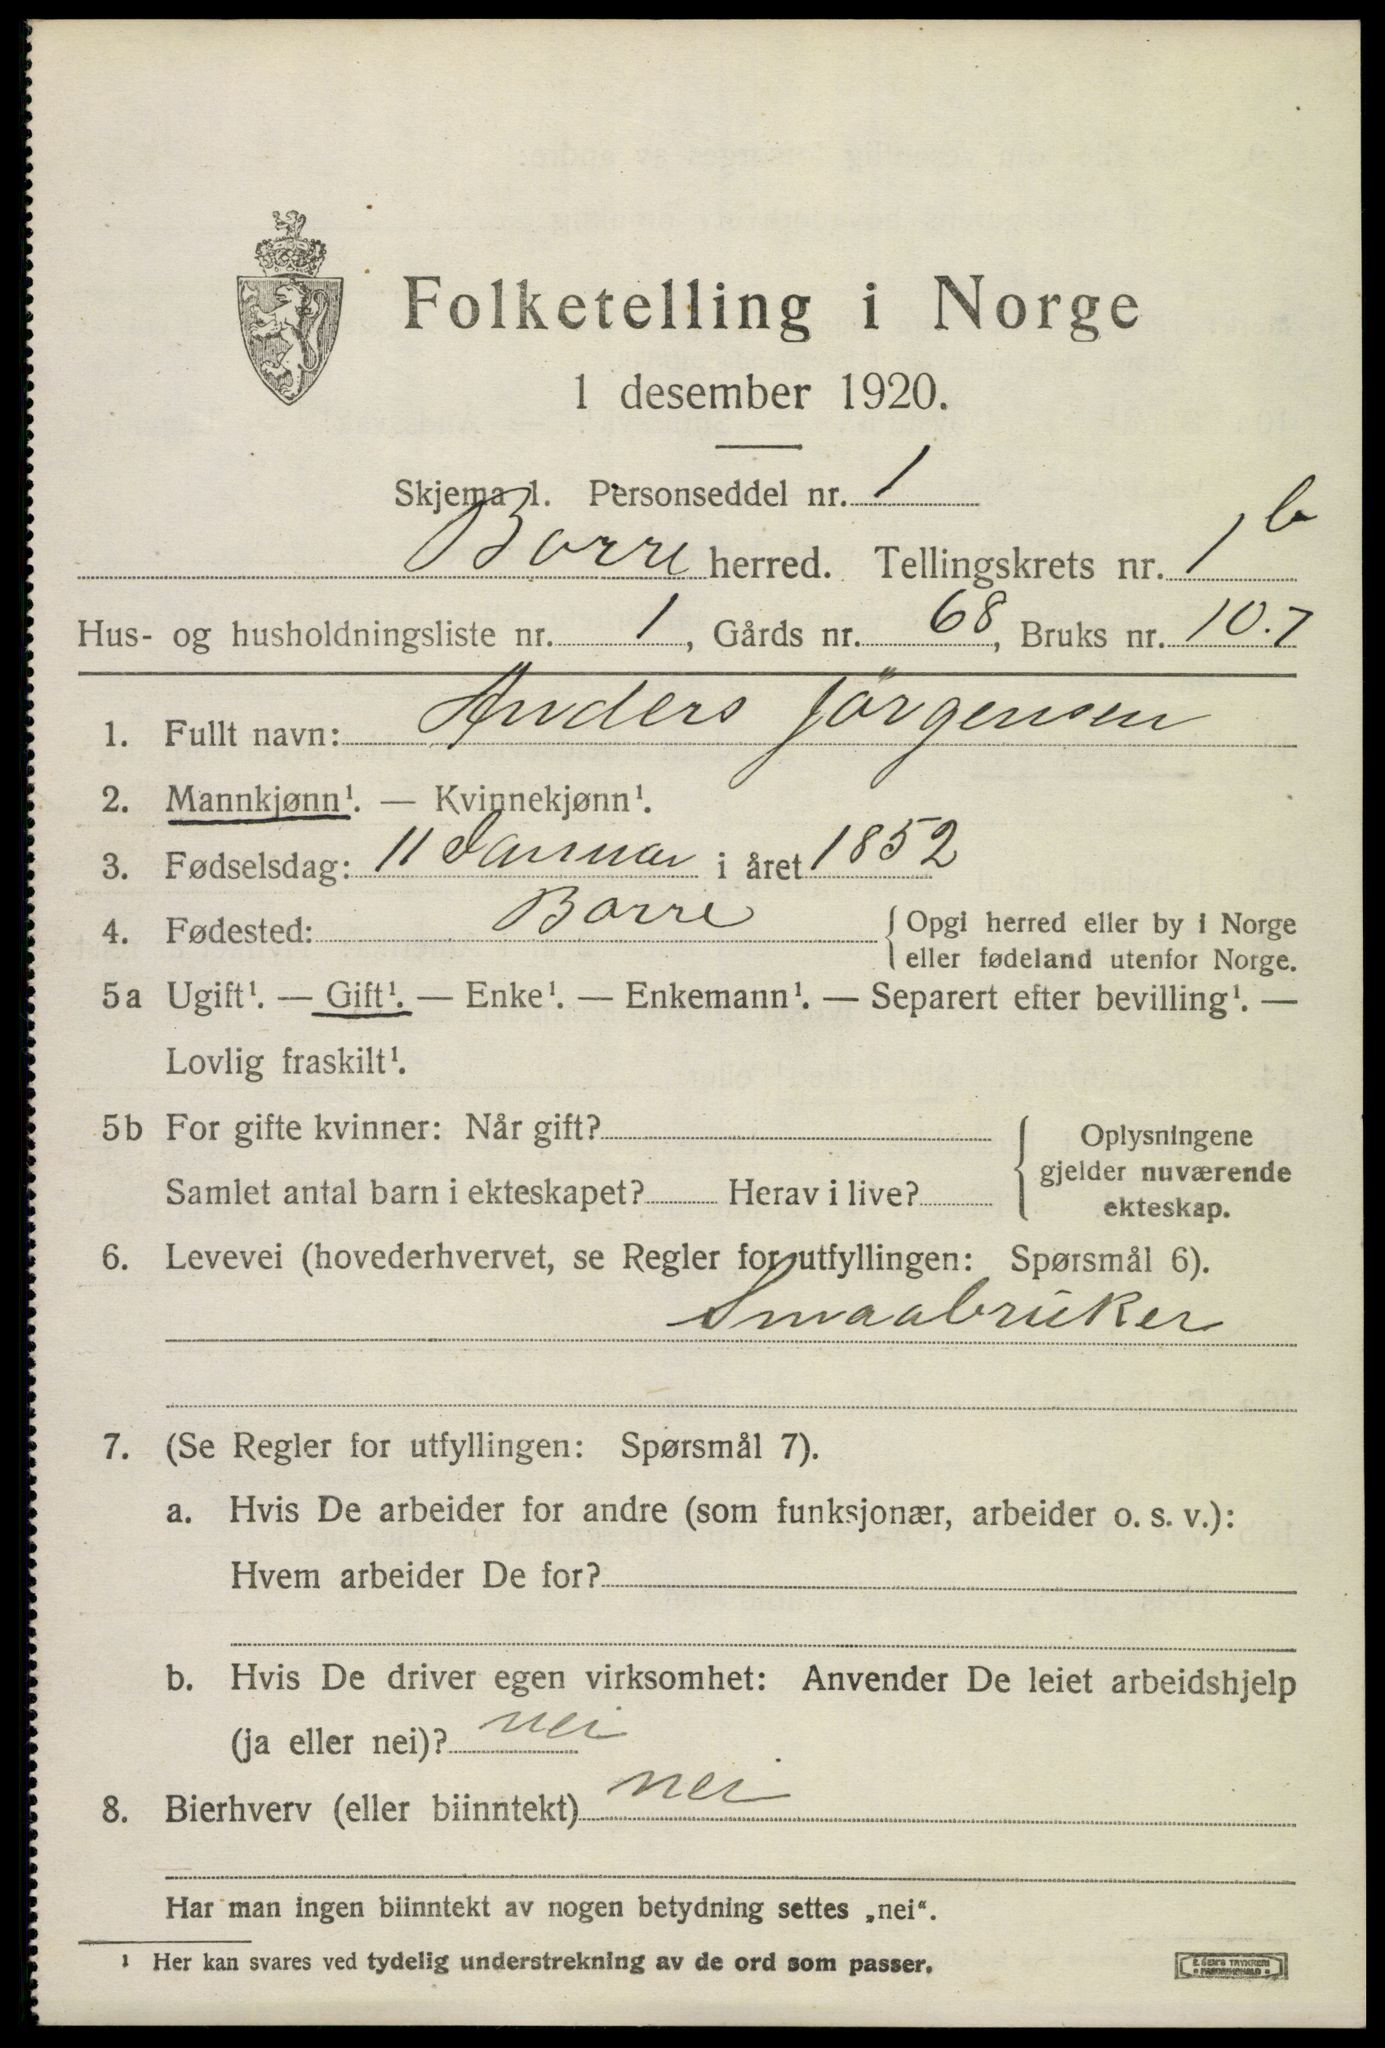 Folketelling i Norge
1 desember 1920.
Skjema 1. Personseddel nr. 1
Borre herred. Tellingskrets nr. 1 b
Hus- og husholdningsliste nr. 1, Gårds nr. 68, Bruks nr. 10.7
1. Fullt navn: Anders Jörgensen
2. Mannkjønn¹. — Kvinnekjønn¹.
3. Fødselsdag: 11 Januar i året 1852
4. Fødested: Borre { Opgi herred eller by i Norge
eller fødeland utenfor Norge.
5a Ugift¹. — Gift¹. — Enke¹. — Enkemann¹. — Separert efter bevilling¹. —
Lovlig fraskilt¹.
5b For gifte kvinner: Når gift?
Samlet antal barn i ekteskapet? Herav i live?
{ Oplysningene
gjelder nuværende
ekteskap.
6. Levevei (hovederhvervet, se Regler for utfyllingen: Spørsmål 6).
Smaabrüker
7. (Se Regler for utfyllingen: Spørsmål 7).
a. Hvis De arbeider for andre (som funksjonær, arbeider o. s. v.):
Hvem arbeider De for?
b. Hvis De driver egen virksomhet: Anvender De leiet arbeidshjelp
(ja eller nei)? nei
8. Bierhverv (eller biinntekt) nei
Har man ingen biinntekt av nogen betydning settes „nei“.
¹ Her kan svares ved tydelig understrekning av de ord som passer.